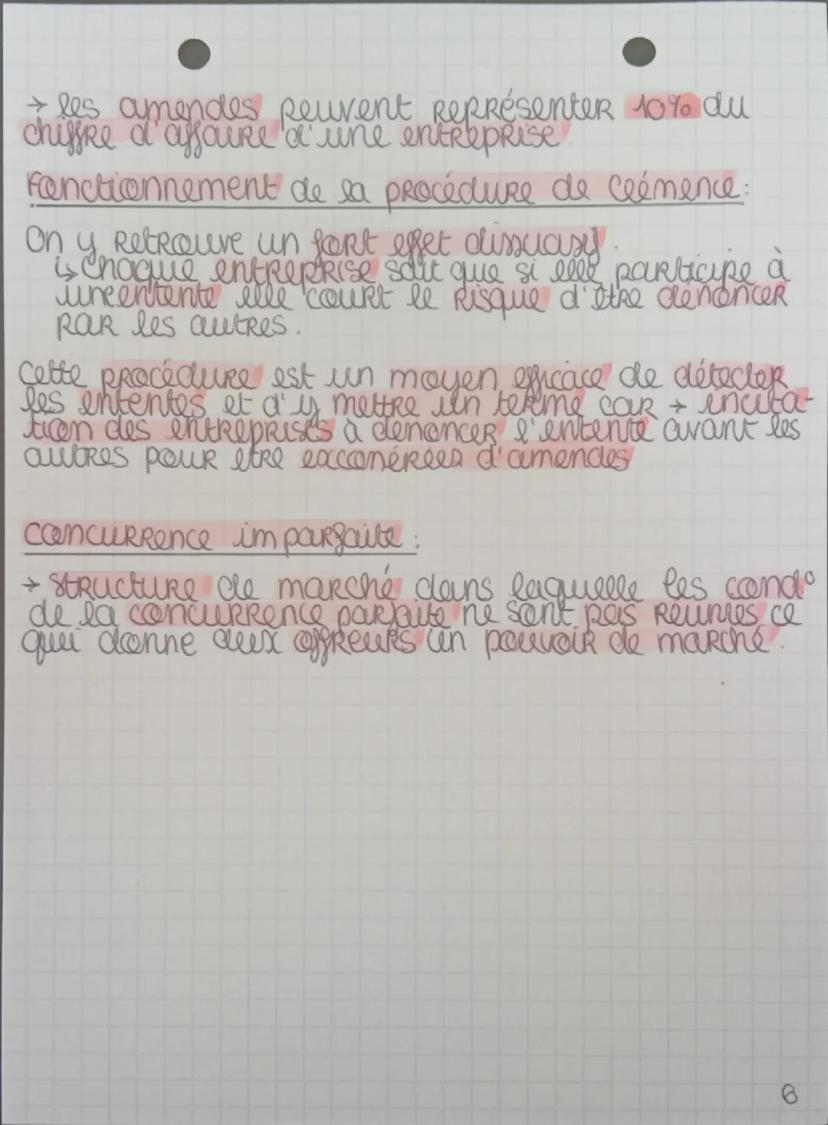 → les amendes peuvent représenter 10% du
chiffre d'affaire d'une entreprise.
Fonctionnement de la procédure de clémence :
On y retrouve un fort effet dissuasif.
↳ chaque entreprise sait que si elle participe à
une entente elle court le risque d'être dénoncer
par les autres.
Cette procédure est un moyen efficace de détecter
les ententes et d'y mettre un terme car → incita-
tion des entreprises à dénoncer l'entente avant les
autres pour être exconérées d'amendes
concurrence imparfaite :
→ structure de marché dans laquelle les cond°
de la concurrence parfaite ne sont pas réunies ce
qui donne aux offreurs un pouvoir de marché.
6